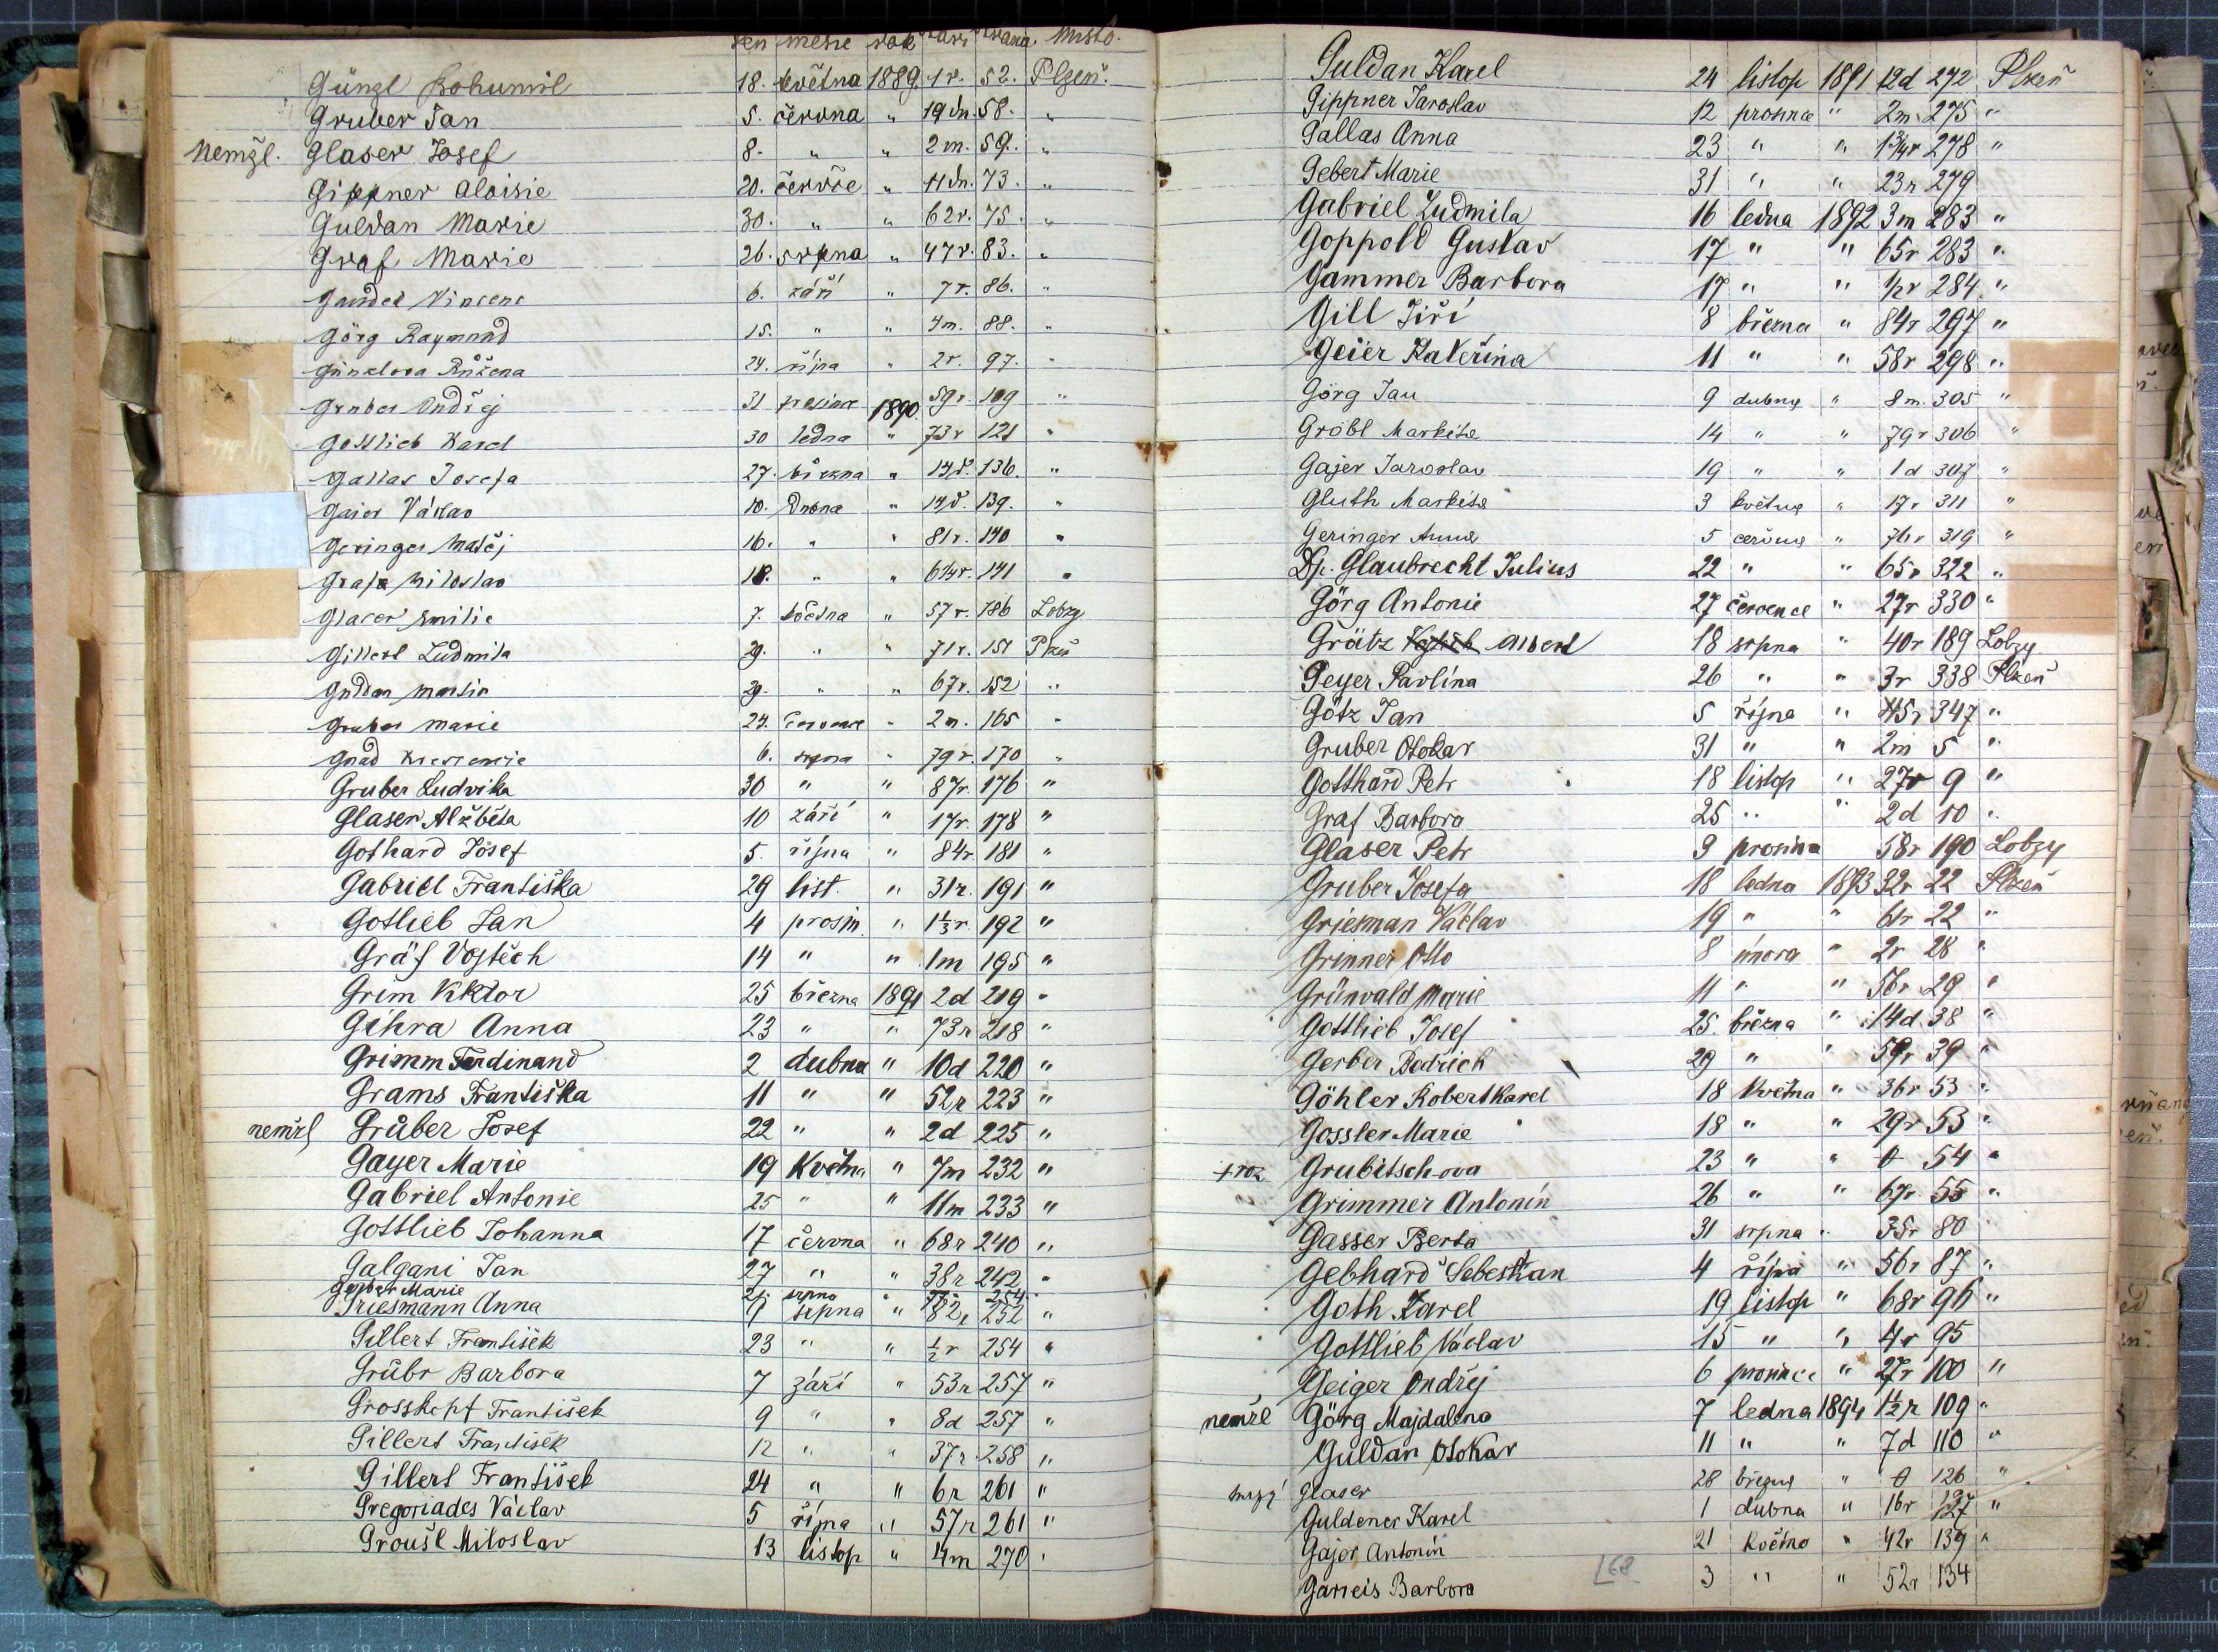 den měsíc rok stáří strana. Místo.
Günzl Bohumil 18. května 1889. 1 r. 52. Plzeň.
Gruber Jan 5. června „ 19 dn. 58. „
Nemžl. Glaser Josef 8. „ „ 2 m. 59. „
Gippner Aloisie 20. červce „ 11 dn. 73. „
Guldan Marie 30. „ „ 62 r. 75. „
Graf Marie 26. srpna „ 47 r. 83. „
Vincenc 6. září „ 7 r. 86. „
Görg Raymund 15. „ „ 4 m. 88. „
Günzlova Růžena 24. října „ 2 r. 97. „
Gruber Ondřej 31 prosince 1890. 59 r. 109 „
Gottlieb Karel 30 ledna „ 73 r 121 „
Gallas Josefa 27. března „ 14 d. 136. „
Gaier Václav 10. Dubna „ 14 d. 139. „
Geringer Matěj 16. „ „ 81 r. 140 „
Miloslav 18. „ „ 6 1/4 r. 141 „
Glaser Emilie 7. května „ 57 r. 186 Lobzy
Gillert Ludmila 29. „ „ 71 r. 151 Plzeň
Guldan Martin 29. „ „ 67 r. 152 „
Gruber Marie 24. července „ 2 m. 165 „
Gnad 6. srpna „ 79 r. 170 „
Gruber Ludvika 30 „ „ 87 r. 176 „
Glaser Alžběta 10 září „ 17 r. 178 „
Gothard Josef 5. října „ 84 r. 181 „
Gabriel Františka 29 list. „ 31 r. 191 „
Gotlieb Jan 4 prosin. „ 1 1/3 r 192 „
Gräf Vojtěch 14 „ „ 1 m 195 „
Grim Viktor 25 března 1891 2 d 219 „
Gihra Anna 23 „ „ 73 r 218 „
Grimm Ferdinand 2 dubna „ 10 d 220 „
Grams Františka 11 „ „ 52 r 223 „
nemžl Grüber Josef 22 „ „ 2 d 225 „
Gayer Marie 19 Května „ 7 m 232 „
Gabriel Antonie 25 „ „ 11 m 233 „
Gottlieb Johanna 17 června „ 68 r 240 „
Galgani Jan 27 „ „ 38 r 242 „
Gerber Marie 21. srpna „ 254 „
Griesmann Anna 9 srpna „ 82 r 252 „
Gillert František 23 „ „ 1/2 r 254 „
Grübr Barbora 7 září „ 53 r 257 „
Grosskopf František 9 „ „ 8 d 257 „
Gillert František 12 „ „ 37 r 258 „
Gillert František 24 „ „ 6 r 261 „
Gregoriades Václav 5 října „ 57 r 261 „
Groušl Miloslav 13 listop „ 4 m 270 „
Guldan Karel 24 listop 1891 12 d 272 Plzeň
Gippner Jaroslav 12 prosince „ 2 m 275 „
Gallas Anna 23 „ „ 1 3/4 r 278 „
Gebert Marie 31 „ „ 23 r 279
Gabriel Ludmila 16 ledna 1892 3 m 283 „
Goppold Gustav 17 „ „ 65 r 283 „
Gammer Barbora 17 „ „ 1/2 r 284 „
Gill Jiří 8 března „ 84 r 297 „
Geier Kateřina 11 „ „ 58 r 298 „
Görg Jan 9 dubna „ 8 m. 305 „
Gröbl Marketa 14 „ „ 79 r 306 „
Gajer Jaroslav 19 „ „ 1 d 307 „
Gluth Marketa 3 května „ 17 r 311 „
Geringer Anna 5 června „ 76 r 319 „
Dp. Glaubrecht Julius 22 „ „ 65 r 322 „
Görg Antonie 27 července „ 27 r 330 „
Grätz Vojtěch Albert 18 srpna „ 40 r 189 Lobzy
Geyer Pavlína 26 „ „ 3 r 338 Plzeň
Götz Jan 5 října „ 45 r 347 „
Gruber Otokar 31 „ „ 2 m 5 „
Gotthard Petr 18 listop „ 27 r 9 „
Graf Barbora 25 „ „ 2 d 10 „
Glaser Petr 9 prosince 58 r 190 Lobzy
Gruber Josefa 18 ledna 1893 32 r 22 Plzeň
Griesman Václav 19 „ „ 61 r 22 „
Grinner Otto 8 února „ 2 r 28 „
Grünvald Marie 11 „ „ 56 r 29 „
Gottlieb Josef 25. března „ 14 d 38 „
Gerber Bedřich 29 „ „ 59 r 39 „
Göhler Robert Karel 18 Května „ 36 r 53 „
Gossler Marie 18 „ „ 29 r 53 „
+ roz Grubitschova 23 „ „ 0 54 „
Grimmer Antonín 26 „ „ 67 r 55 „
Gasser Berta 31 srpna „ 35 r 80
Gebhard Sebestian 4 října „ 56 r 87 „
Goth Karel 19 listop „ 68 r 96 „
Gottlieb Václav 15 „ „ 4 r 95
Geiger Ondřej 6 prosince „ 27 r 100 „
nemžl Görg Majdalena 7 ledna 1894 1 1/2 r 109 „
Guldan Otokar 11 „ „ 7 d 110 „
mrzý Glaser 28 března „ 0 126 „
Guldener Karel 1 dubna „ 16 r 127 „
Gajer Antonín 21 Května „ 42 r 139 „
Garreis Barbora 3 „ „ 52 r 134
168